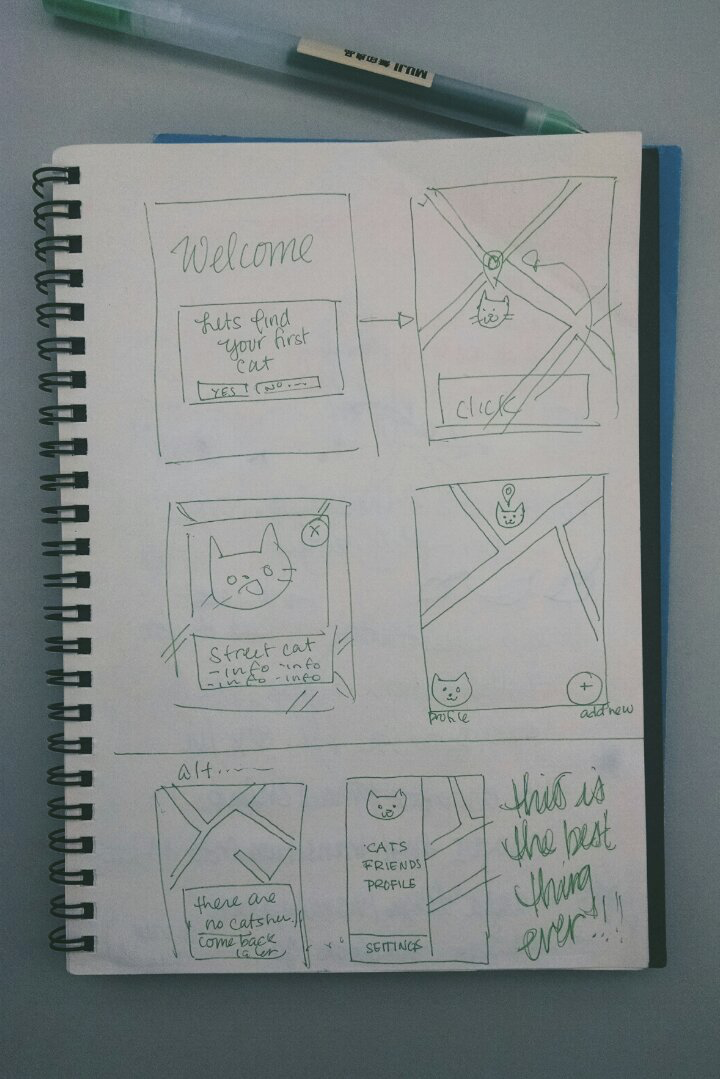 MUJI 無印良品
Welcome
Lets find
your first
cat
YES NO...
Click
X
Street cat
-info -info
-info -info
profile
add new
alt.......
there are
no cats her.
come back
later
CATS
FRIENDS
PROFILE
SETTINGS
this is
the best
thing
ever!!!